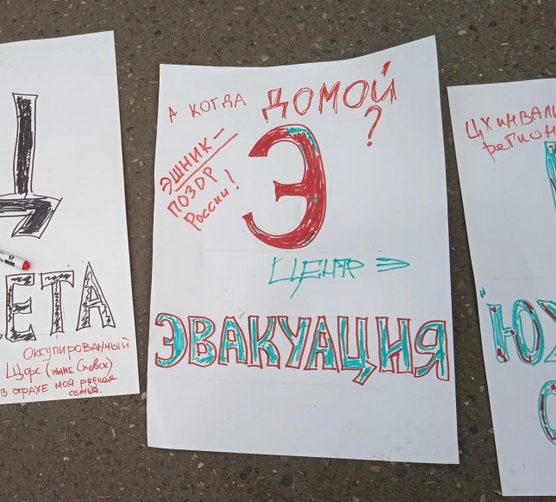 Ц
ЕТА
Оккупированный
Щорс (ныне Сновск)
в страхе моя родная
семья.
А КОГДА ДОМОЙ
?
ЭШНИК –
ПОЗОР
России!
Э
ЦЕНТР Э
ЭВАКУАЦИЯ
ЦХИНВАЛИ
регион
Ю